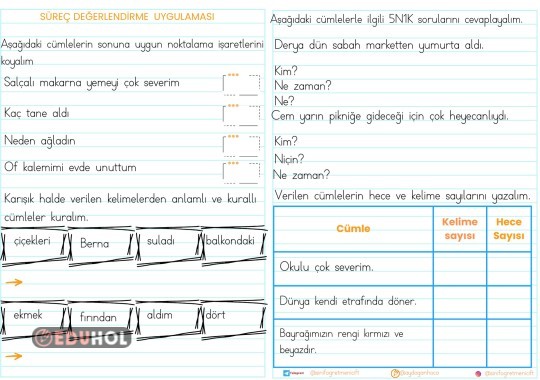 SÜREÇ DEĞERLENDİRME UYGULAMASI
Aşağıdaki cümlelerin sonuna uygun noktalama işaretlerini
koyalım
Salçalı makarna yemeyi çok severim
Kaç tane aldı
Neden ağladın
Of kalemimi evde unuttum
Karışık halde verilen kelimelerden anlamlı ve kurallı
cümleler kuralım.
çiçekleri Berna suladı balkondaki
ekmek fırından aldım dört
EDUHOL
Aşağıdaki cümlelerle ilgili 5N1K sorularını cevaplayalım.
Derya dün sabah marketten yumurta aldı.
Kim?
Ne zaman?
Ne?
Cem yarın pikniğe gideceği için çok heyecanlıydı.
Kim?
Niçin?
Ne zaman?
Verilen cümlelerin hece ve kelime sayılarını yazalım.
Cümle
Kelime
sayısı
Hece
Sayısı
Okulu çok severim.
Dünya kendi etrafında döner.
Bayrağımızın rengi kırmızı ve
beyazdır.